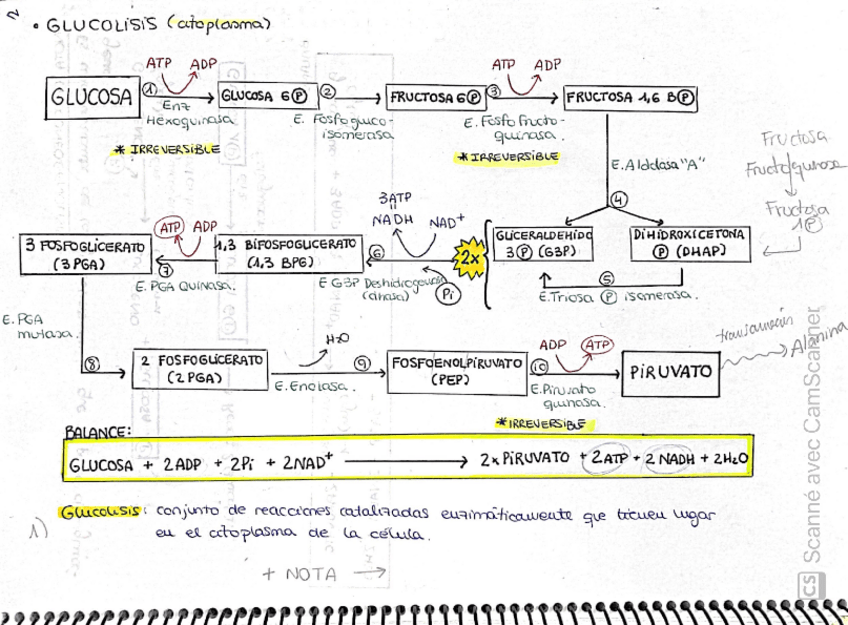 • GLUCOLISIS (citoplasma)
ATP ADP
ATP ADP
GLUCOSA
①
Enz Hexoquinasa.
* IRREVERSIBLE
GLUCOSA 6Ⓟ
②
E. Fosfogluco-
isomerasa
FRUCTOSA 6Ⓟ
③
E. Fosfofructo-
quinasa.
* IRREVERSIBLE
FRUCTOSA 1,6 BⓅ
E. Aldolasa "A"
④
Fructosa
Fructoquinasa
Fructosa
1Ⓟ
GLICERALDEHIDO
3Ⓟ (G3P)
DIHIDROXICETONA
Ⓟ (DHAP)
⑤
E. Triosa Ⓟ isomerasa.
2x
3ATP
NADH NAD⁺
⑥
E G3P Deshidrogenasa
Pi
1,3 BIFOSFOGLICERATO
(1,3 BPG)
ATP ADP
⑦
E. PGA QUINASA.
3 FOSFOGLICERATO
(3PGA)
E. PGA
mutasa.
⑧
2 FOSFOGLICERATO
(2PGA)
H₂O
⑨
E. Enolasa.
FOSFOENOLPIRUVATO
(PEP)
ADP ATP
⑩
E. Piruvato
quinasa.
* IRREVERSIBLE
PIRUVATO
Alanina
BALANCE:
GLUCOSA + 2ADP + 2Pi + 2NAD⁺ → 2x PIRUVATO + 2ATP + 2NADH + 2H₂O
Glucolisis: conjunto de reacciones catalizadas enzimáticamente que tienen lugar
1) en el citoplasma de la célula.
+ NOTA →
CS Scanné avec CamScanner